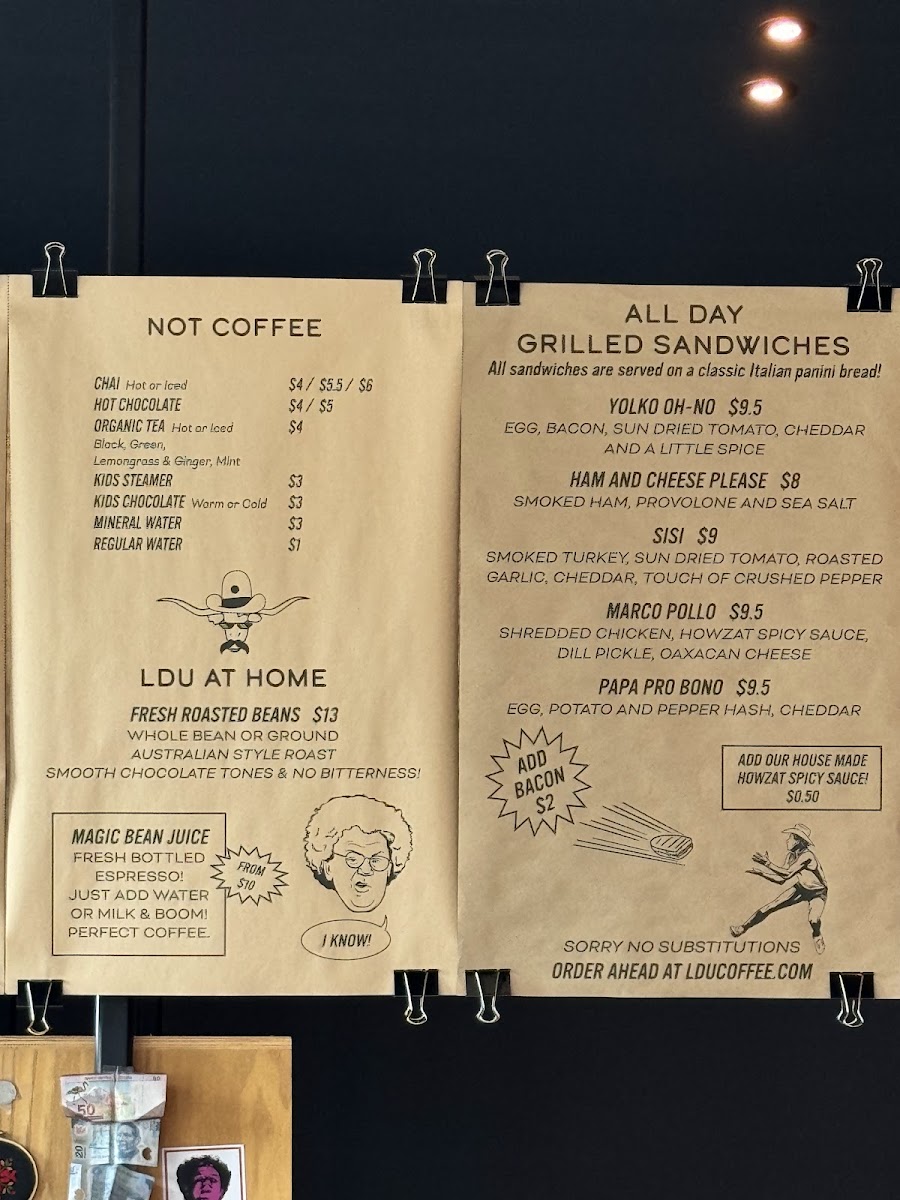 NOT COFFEE
CHAI Hot or Iced $4 / $5.5 / $6
HOT CHOCOLATE $4 / $5
ORGANIC TEA Hot or Iced $4
Black, Green,
Lemongrass & Ginger, Mint
KIDS STEAMER $3
KIDS CHOCOLATE Warm or Cold $3
MINERAL WATER $3
REGULAR WATER $1
LDU AT HOME
FRESH ROASTED BEANS $13
WHOLE BEAN OR GROUND
AUSTRALIAN STYLE ROAST
SMOOTH CHOCOLATE TONES & NO BITTERNESS!
MAGIC BEAN JUICE
FRESH BOTTLED
ESPRESSO!
JUST ADD WATER
OR MILK & BOOM!
PERFECT COFFEE.
FROM
$10
I KNOW!
ALL DAY
GRILLED SANDWICHES
All sandwiches are served on a classic Italian panini bread!
YOLKO OH-NO $9.5
EGG, BACON, SUN DRIED TOMATO, CHEDDAR
AND A LITTLE SPICE
HAM AND CHEESE PLEASE $8
SMOKED HAM, PROVOLONE AND SEA SALT
SISI $9
SMOKED TURKEY, SUN DRIED TOMATO, ROASTED
GARLIC, CHEDDAR, TOUCH OF CRUSHED PEPPER
MARCO POLLO $9.5
SHREDDED CHICKEN, HOWZAT SPICY SAUCE,
DILL PICKLE, OAXACAN CHEESE
PAPA PRO BONO $9.5
EGG, POTATO AND PEPPER HASH, CHEDDAR
ADD
BACON
$2
ADD OUR HOUSE MADE
HOWZAT SPICY SAUCE!
$0.50
SORRY NO SUBSTITUTIONS
ORDER AHEAD AT LDUCOFFEE.COM
50
20